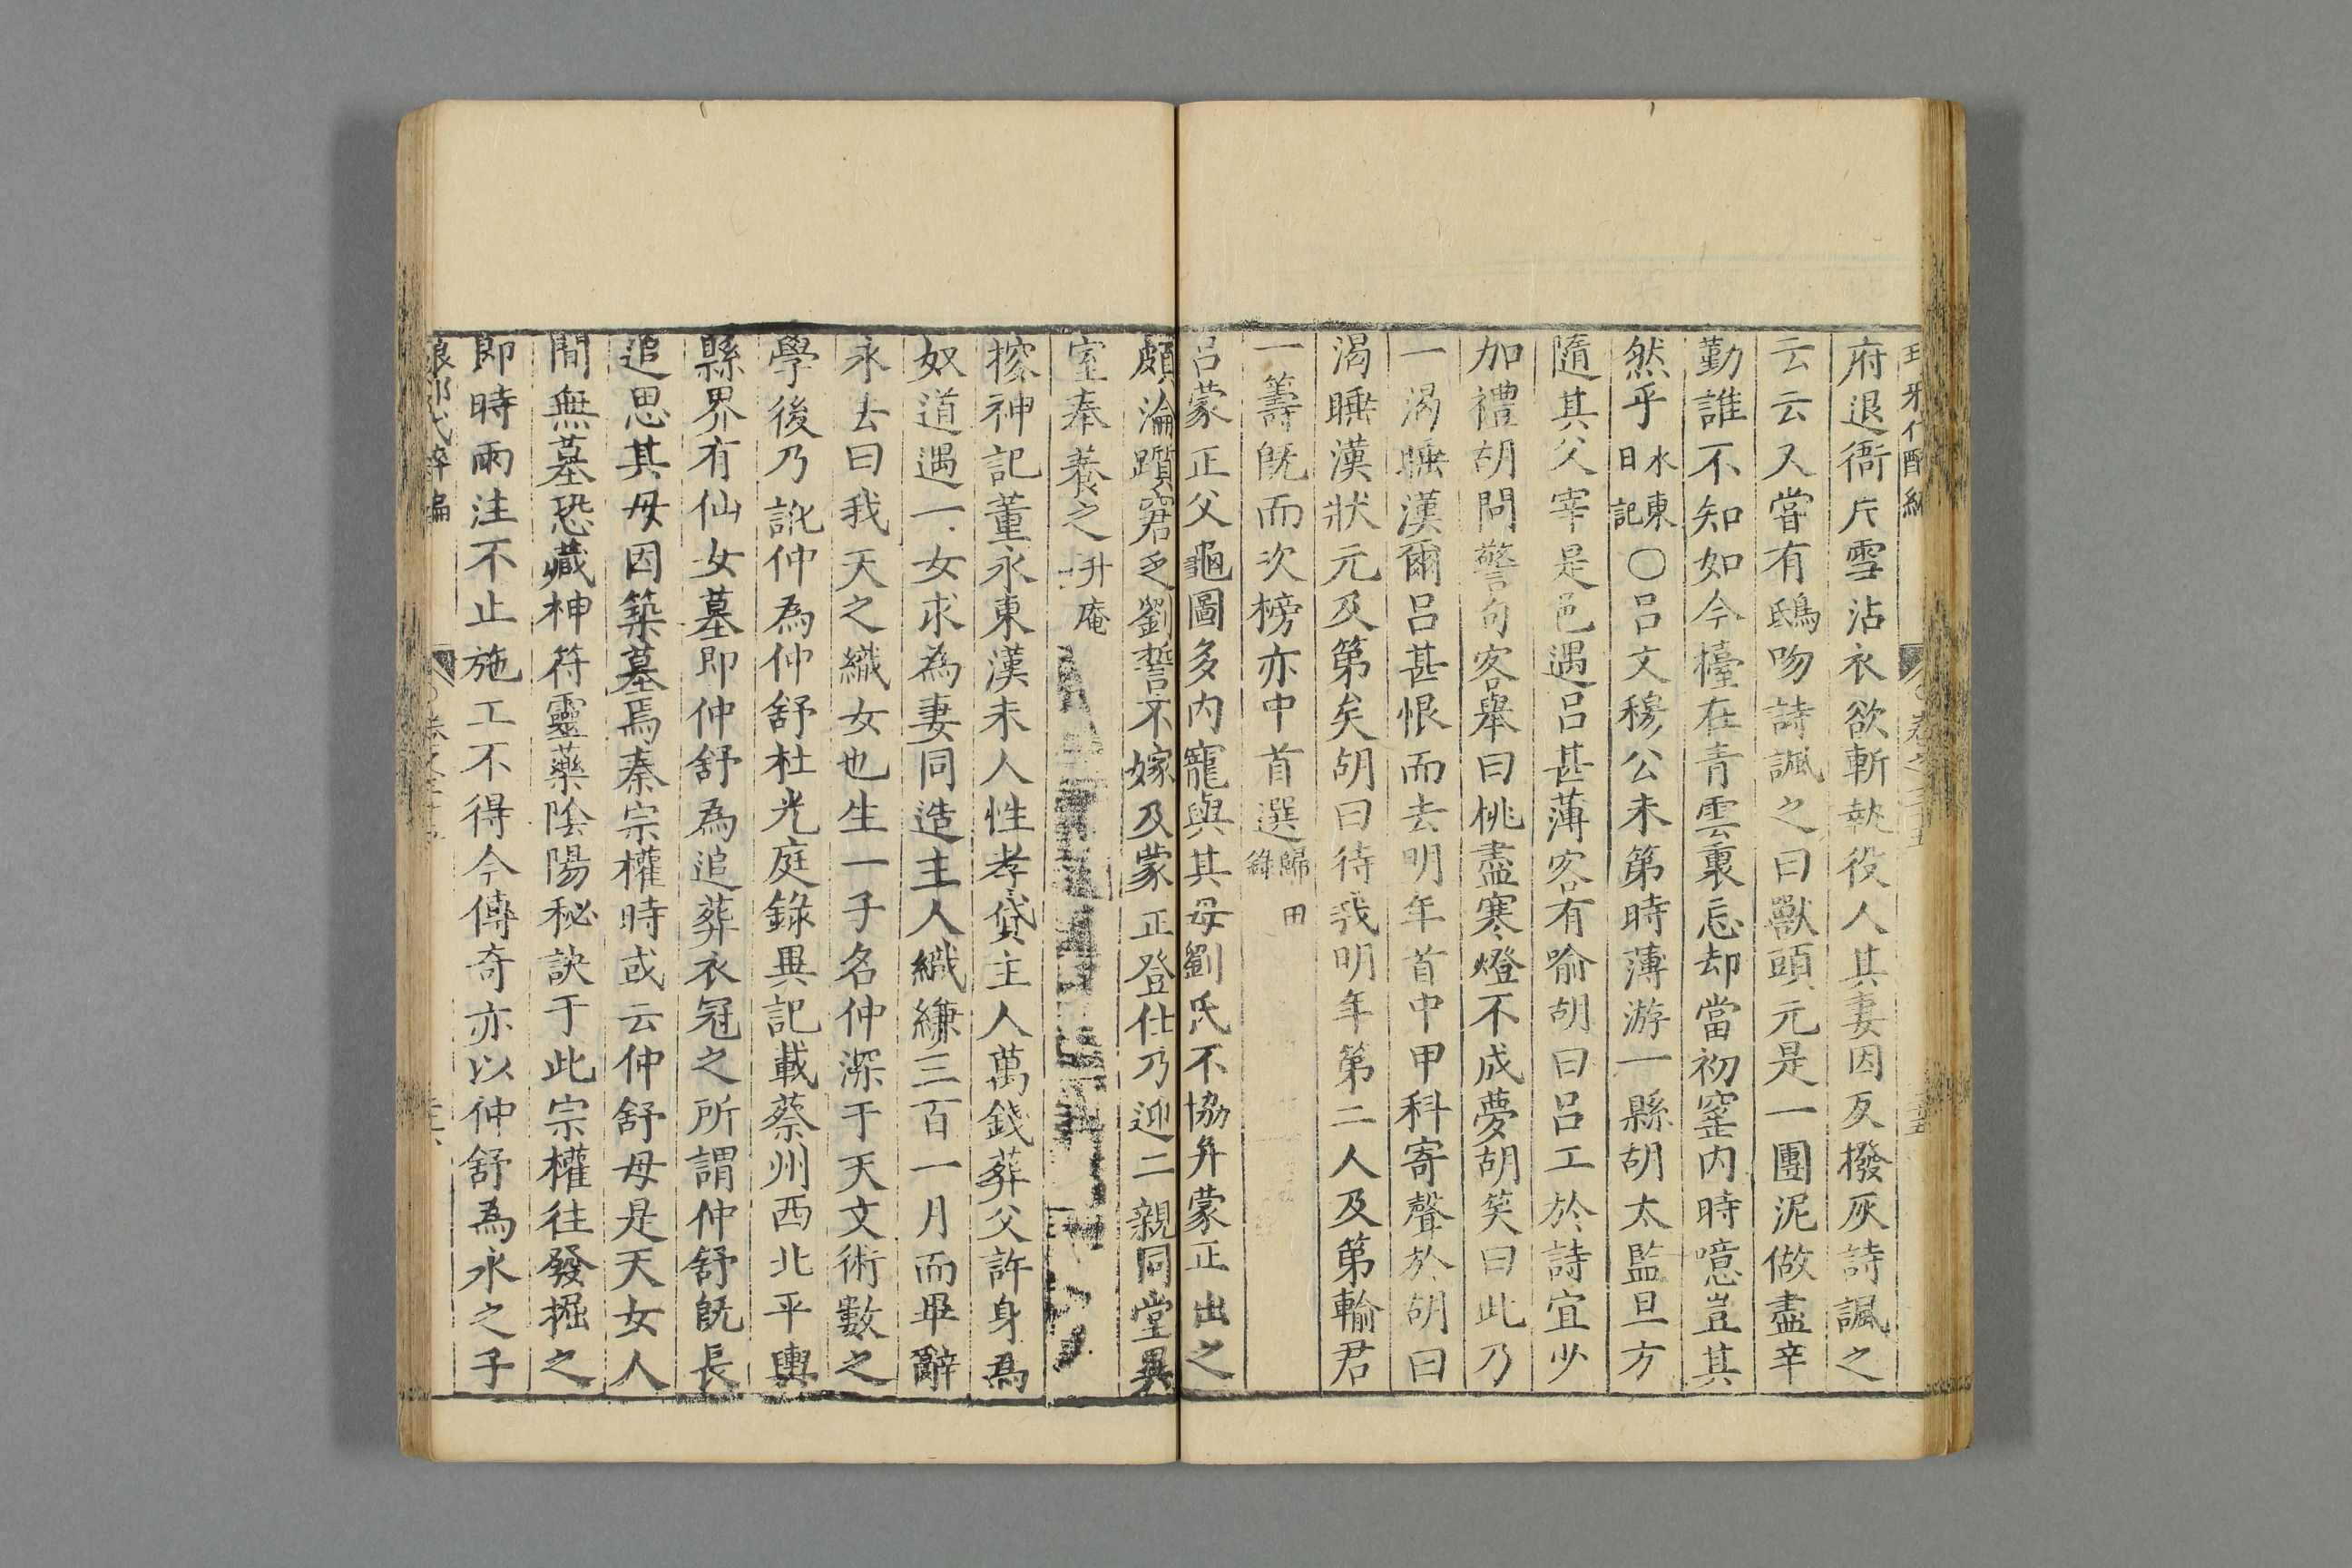 府退衙片雪沾衣欲斬執役人其妻因反撥灰詩諷之
云云又嘗有鴟吻詩諷之曰獸頭元是一團泥做盡辛
勤誰不知如今檯在青雲裏忘却當初窰内時噫豈其
然乎水東日記○呂文穆公未第時薄游一縣胡太監旦方
隨其父宰是邑遇呂甚薄客有喻胡曰呂工於詩宜少
加禮胡問警句客舉曰桃盡寒燈不成夢胡笑曰此乃
一渴睡漢爾呂甚恨而去明年首中甲科寄聲於胡曰
渴睡漢狀元及第矣胡曰待我明年第二人及第輸君
一籌旣而次榜亦中首選歸田錄
呂蒙正父龜圖多内寵與其母劉氏不協弁蒙正出之
頗淪躓窘乏劉誓不嫁及蒙正登仕乃迎二親同堂異
室奉養之升庵
搜神記董永東漢末人性孝貸主人萬錢葬父許身為
奴道遇一女求為妻同造主人織縑三百一月而畢辭
永去曰我天之織女也生一子名仲深于天文術數之
學後乃訛仲為仲舒杜光庭錄異記載蔡州西北平輿
縣界有仙女墓即仲舒為追葬衣冠之所謂仲舒旣長
追思其母因築墓焉秦宗權時或云仲舒母是天女人
間無墓恐藏神符靈藥陰陽秘訣于此宗權往發掘之
即時雨注不止施工不得今傳奇亦以仲舒為永之子